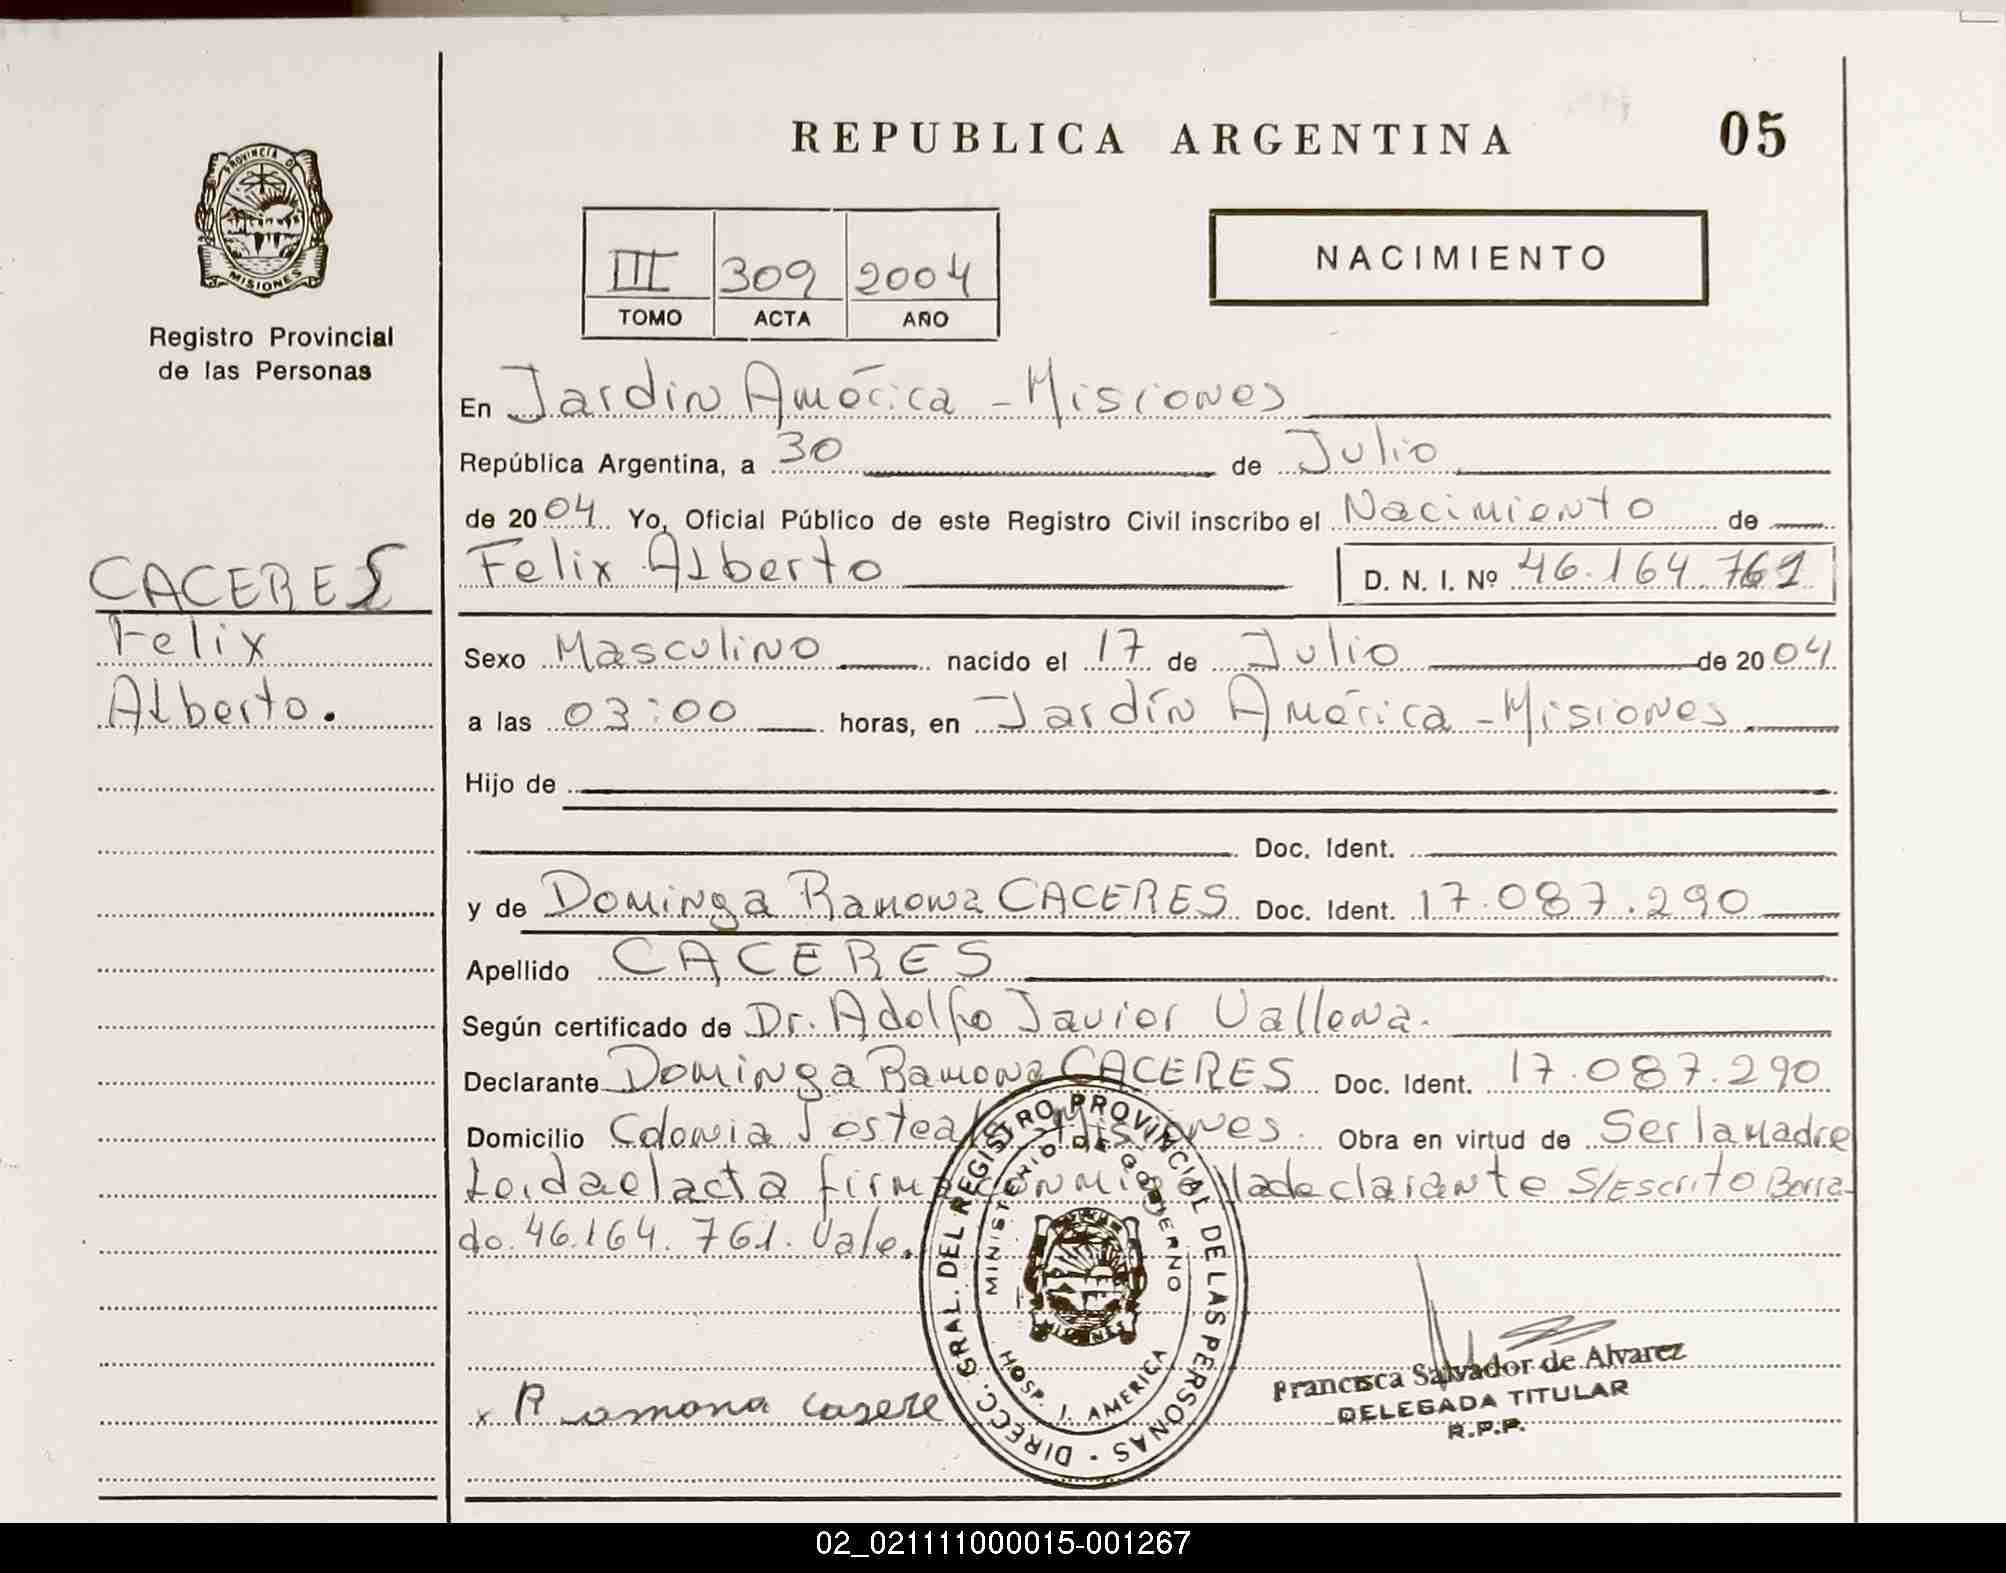 REPUBLICA ARGENTINA
05
PROVINCIA D
MISIONES
Registro Provincial
de las Personas
NACIMIENTO
III 309 2004
TOMO ACTA AÑO
En Jardin América - Misiones
República Argentina, a 30 de Julio
de 2004 Yo, Oficial Público de este Registro Civil inscribo el Nacimiento de
Felix Alberto D. N. I. Nº 46.164.761
CACERES
Felix
Alberto.
Sexo Masculino nacido el 17 de Julio de 2004
a las 03:00 horas, en Jardín América - Misiones
Hijo de
Doc. Ident.
y de Dominga Ramona CACERES Doc. Ident. 17.087.290
Apellido CACERES
Según certificado de Dr. Adolfo Javier Vallena.
Declarante Dominga Ramona CACERES Doc. Ident. 17.087.290
Domicilio Colonia Misiones. Obra en virtud de Ser la madre
Leida el acta firma conmigo la declarante S/Escrito Borra-
do. 46.164.761. Vale.
DIRECC. GRAL. DEL REGISTRO PROVINCIAL DE LAS PERSONAS -
MINISTERIO DE GOBIERNO
MISIONES
HOSP. J. AMERICA
x Ramona casere
Francisca Salvador de Alvarez
DELEGADA TITULAR
R.P.P.
02_021111000015-001267